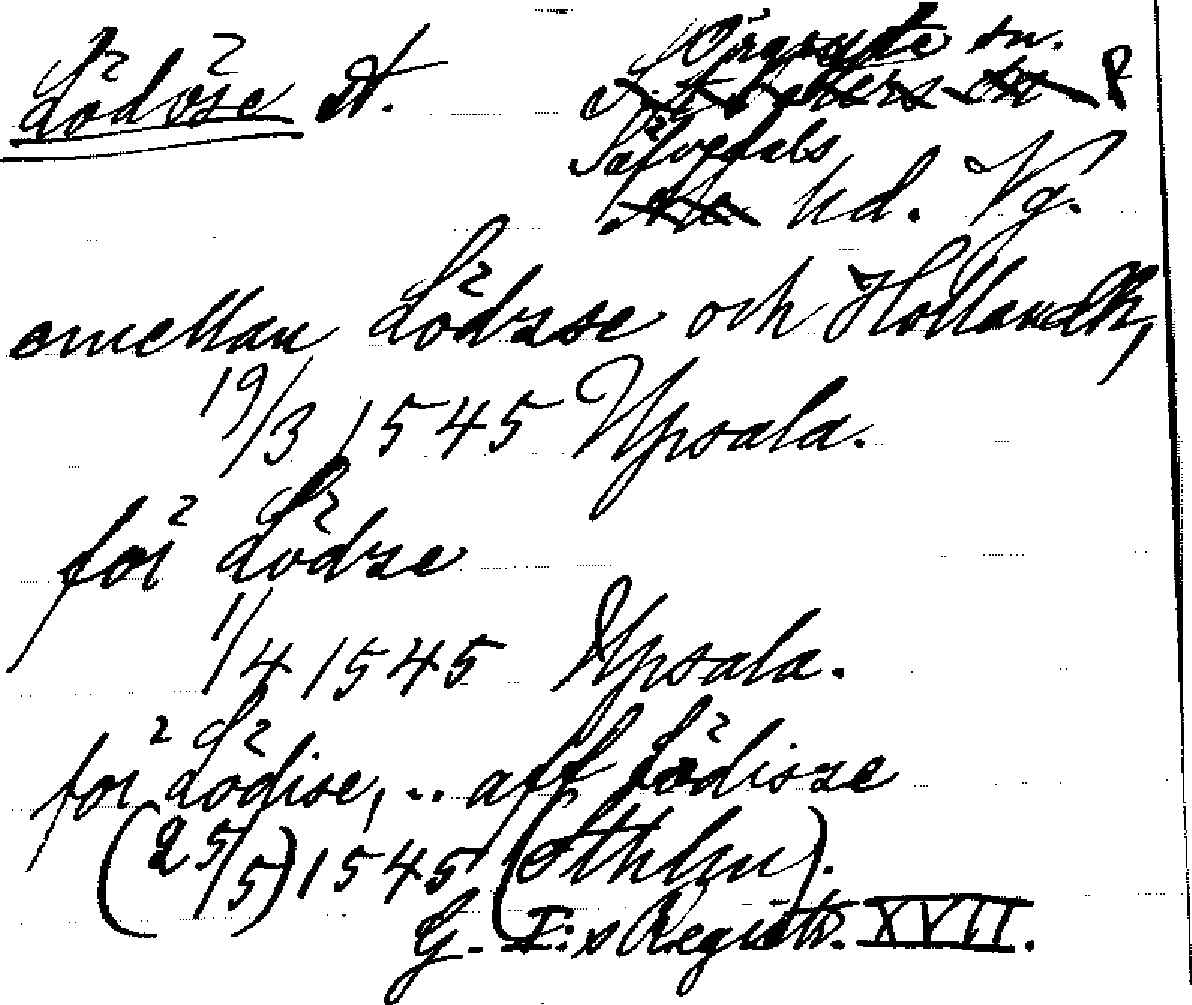 Lödöse St. Örgryte sn.
S:t Peters sn P
Säfvedals
Ale hd. Vg.
emellan Lödzse och Hollandh,
19/3 1545 Upsala.
för Lödze
1/4 1545 Upsala.
för Lödise, .. aff Lödisze
(25/5) 1545 (Sthlm).
G. I:s Registr. XVII.